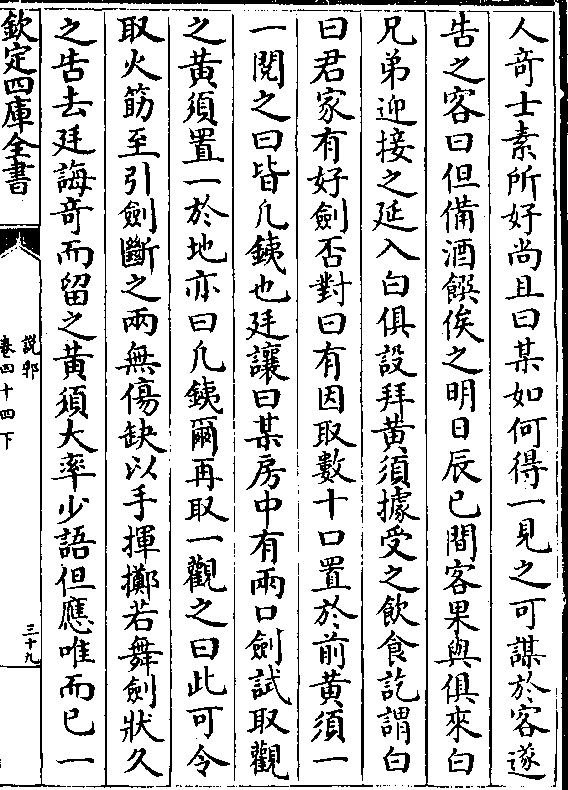 人奇士素所好尚且曰某如何得一見之可謀於客遂
告之客曰但備酒饌俟之明日辰巳間客果與俱來白
兄弟迎接之延入白俱設拜黃須據受之飲食訖謂白
曰君家有好劍否對曰有因取數十口置於前黃須一
一閱之曰皆凡鐵也廷讓曰某房中有兩口劍試取觀
之黃須置一於地亦曰凡鐵爾再取一觀之曰此可令
取火筯至引劍斷之兩無傷缺以手揮擲若舞劍狀久
之告去廷誨奇而留之黃須大率少語但應唯而已一
欽定四庫全書
說郛
卷四十四下
三十九